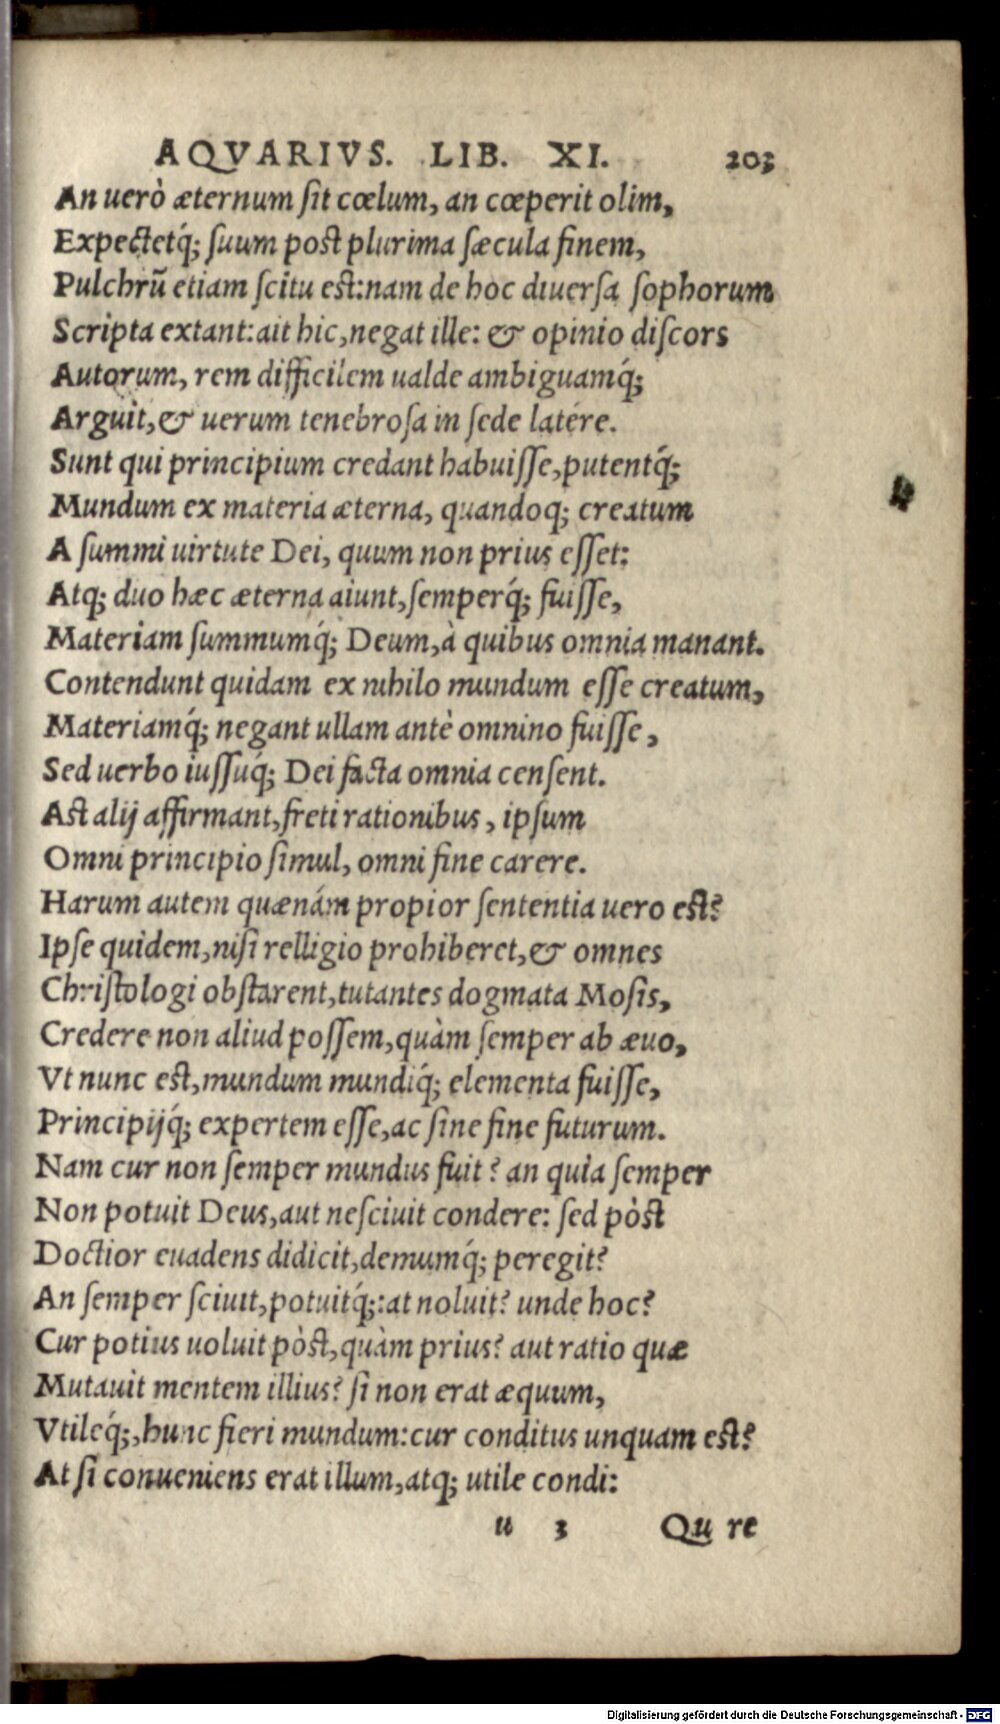 AQVARIVS. LIB. XI. 203
An uerò æternum ſit cœlum, an cœperit olim,
Expectetq́; ſuum poſt plurima ſæcula finem,
Pulchrũ etiam ſcitu eſt:nam de hoc diuerſa ſophorum
Scripta extant:ait hic,negat ille: & opinio diſcors
Autorum, rem difficilem ualde ambiguamq́;
Arguit,& uerum tenebroſa in ſede latére.
Sunt qui principium credant habuiſſe,putentq́;
Mundum ex materia æterna, quandoq; creatum
A ſummi uirtute Dei, quum non prius eſſet:
Atq; duo hæc æterna aiunt,ſemperq́; fuiſſe,
Materiam ſummumq́; Deum,à quibus omnia manant.
Contendunt quidam ex nihilo mundum eſſe creatum,
Materiamq́; negant ullam antè omnino fuiſſe,
Sed uerbo iuſſuq́; Dei facta omnia cenſent.
Aſt alij affirmant,freti rationibus, ipſum
Omni principio ſimul, omni fine carere.
Harum autem quænám propior ſententia uero eſt?
Ipſe quidem,niſi relligio prohiberet,& omnes
Chriſtologi obſtarent,tutantes dogmata Moſis,
Credere non aliud poſſem,quàm ſemper ab æuo,
Vt nunc eſt,mundum mundiq́; elementa fuiſſe,
Principijq́; expertem eſſe,ac ſine fine futurum.
Nam cur non ſemper mundus fuit? an quia ſemper
Non potuit Deus,aut neſciuit condere: ſed pòſt
Doctior euadens didicit,demumq́; peregit?
An ſemper ſciuit,potuitq́;:at noluit? unde hoc?
Cur potius uoluit pòſt,quàm prius? aut ratio quæ
Mutauit mentem illius? ſi non erat æquum,
Vtileq́;,hunc fieri mundum:cur conditus unquam eſt?
At ſi conueniens erat illum,atq; utile condi:
u 3 Qu re
Digitalisierung gefördert durch die Deutsche Forschungsgemeinschaft - DFG